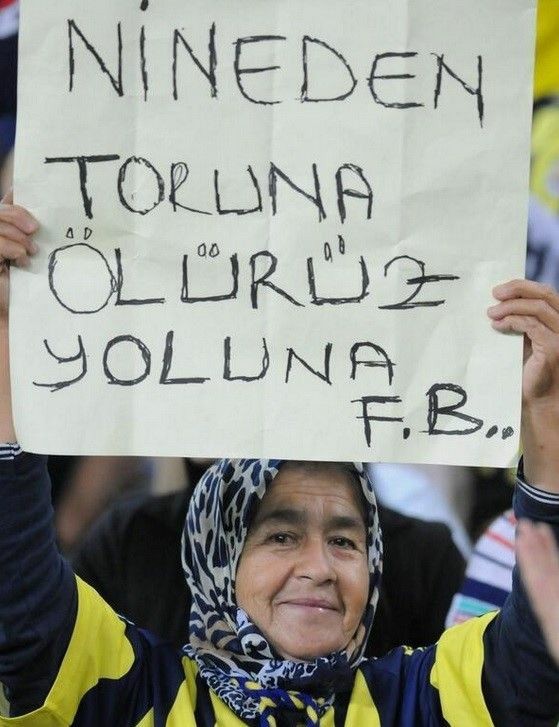 NİNEDEN
TORUNA
ÖLÜRÜZ
YOLUNA
F.B..